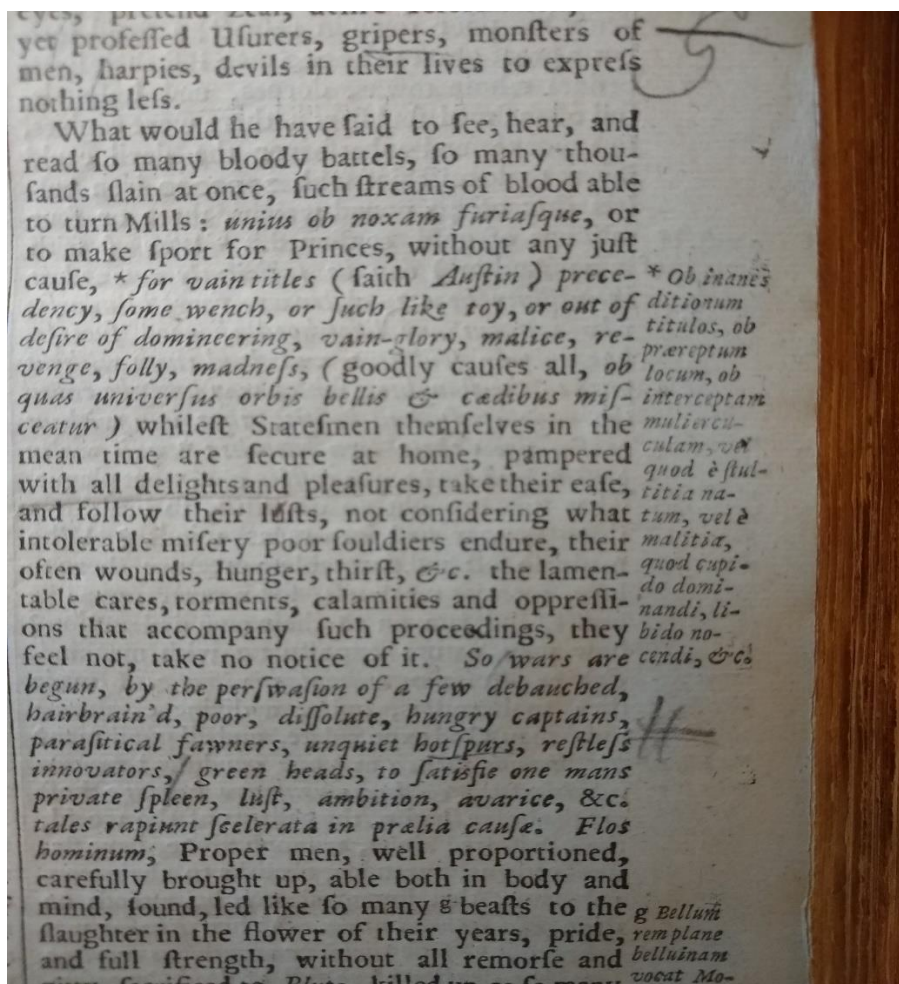 yet profeſſed Uſurers, gripers, monſters of
men, harpies, devils in their lives to expreſs
nothing leſs.
What would he have ſaid to ſee, hear, and
read ſo many bloody battels, ſo many thou-
ſands ſlain at once, ſuch ſtreams of blood able
to turn Mills : unius ob noxam furiaſque, or
to make ſport for Princes, without any juſt
cauſe, * for vain titles ( ſaith Auſtin ) prece-
dency, ſome wench, or ſuch like toy, or out of
deſire of domineering, vain-glory, malice, re-
venge, folly, madneſs, ( goodly cauſes all, ob
quas univerſus orbis bellis & cædibus miſ-
ceatur ) whileſt Stateſmen themſelves in the
mean time are ſecure at home, pampered
with all delights and pleaſures, take their eaſe,
and follow their luſts, not conſidering what
intolerable miſery poor ſouldiers endure, their
often wounds, hunger, thirſt, &c. the lamen-
table cares, torments, calamities and oppreſſi-
ons that accompany ſuch proceedings, they
feel not, take no notice of it. So wars are
begun, by the perſwaſion of a few debauched,
hairbrain'd, poor, diſſolute, hungry captains,
paraſitical fawners, unquiet hotſpurs, reſtleſs
innovators, green heads, to ſatisfie one mans
private ſpleen, luſt, ambition, avarice, &c.
tales rapiunt ſcelerata in prælia cauſæ. Flos
hominum, Proper men, well proportioned,
carefully brought up, able both in body and
mind, ſound, led like ſo many g beaſts to the
ſlaughter in the flower of their years, pride,
and full ſtrength, without all remorſe and
* Ob inanes
ditionum
titulos, ob
præreptum
locum, ob
interceptam
muliercu-
culam, vel
quod è ſtul-
titia na-
tum, vel è
malitia,
quod cupi-
do domi-
nandi, li-
bido no-
cendi, &c.
g Bellum
rem plane
belluinam
vocat Mo-